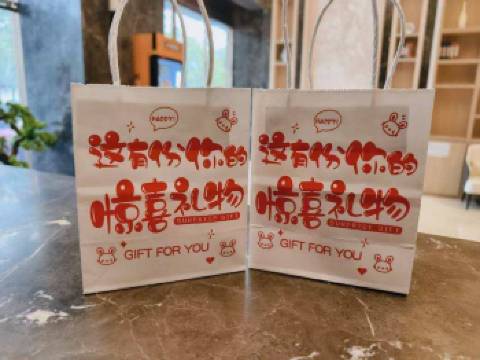 HAPPY!
这有份你的
惊喜礼物
SURPRISE GIFT
GIFT FOR YOU
HAPPY!
这有份你的
惊喜礼物
SURPRISE GIFT
GIFT FOR YOU